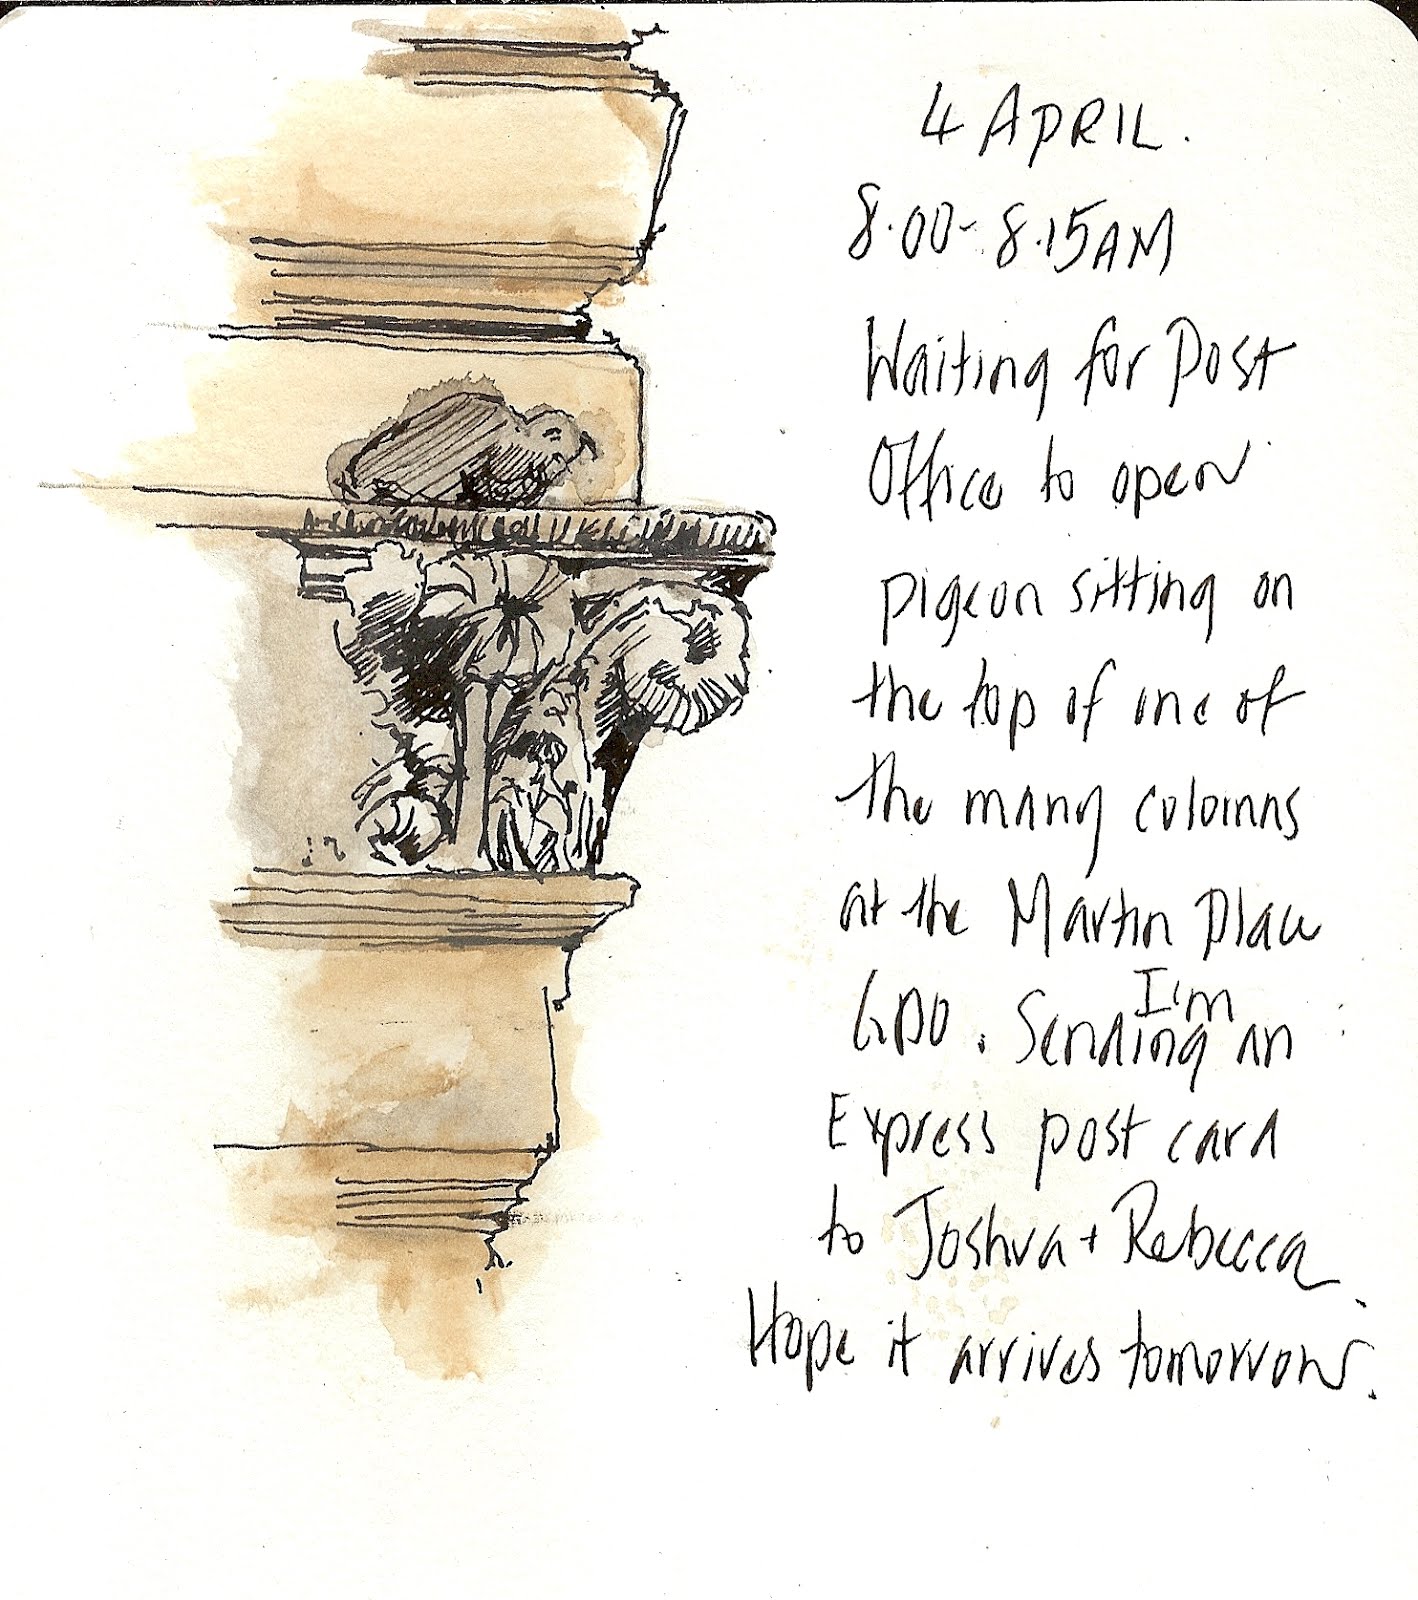 4 APRIL.
8.00-8.15AM
Waiting for Post
Office to open
pigeon sitting on
the top of one of
the many coloinns
at the Martin Place
GPO. I'm Sending an
Express post card
to Joshua + Rebecca.
Hope it arrives tomorrow.